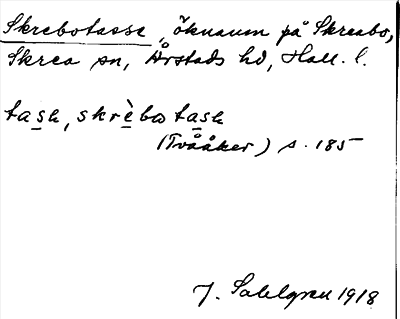 Skrebotasse, öknamn på Skreabo,
Skrea sn, Årstads hd, Hall. l.
tasə, skrèbotasə
(Tvååker) s. 185
J. Sahlgren 1918